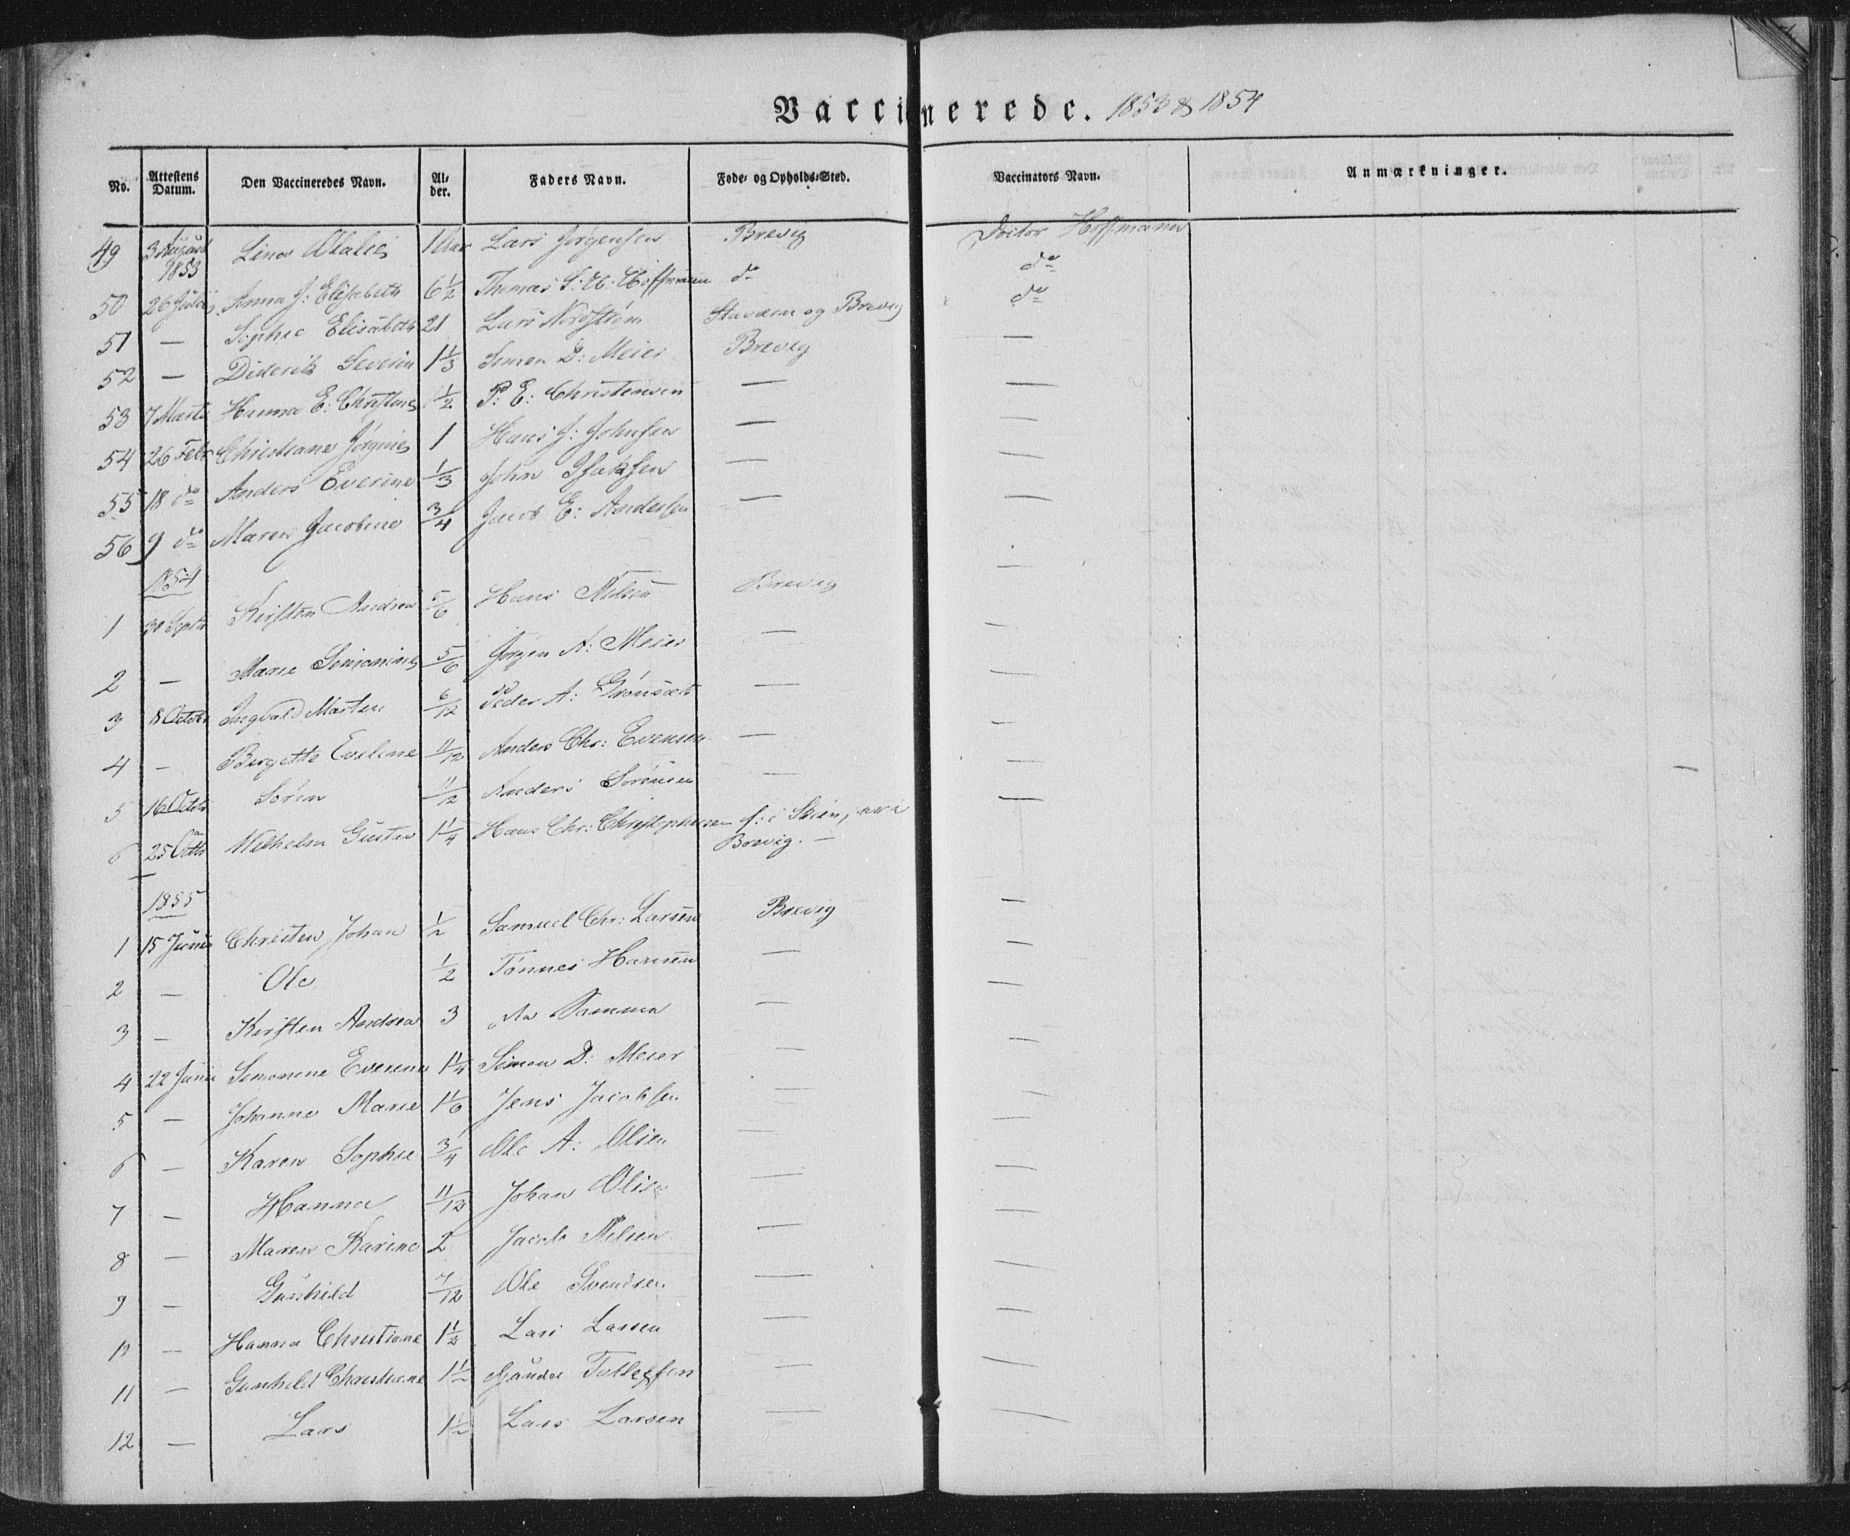 Vaccinerede. 1853 & 1854
No. Attestens Datum. Den Vaccineredes Navn. Al-der. Faders Navn. Føde- og Opholds-Sted. Vaccinators Navn. Anmærkninger.
49 3 August 1853 Lina Olalie 1 Aar Lars Jørgensen Brevig Doctor Hoffmann
50 26 Juli Anna J. Elisabeth 6 1/2 Thomas Hoffmann do do
51 — Sophie Elisabeth 21 Lars Nordstrøm og Brevig do
52 — Diderik Severin 1 1/3 Simon D: Meier Brevig —
53 7 Marts Hanna E: Christiane 1/2 P: E: Christensen — —
54 26 Febr Christiane Jørgine 1 Hans J: Johnsen — —
55 18 do Anders Everine 1/3 John Isaksen — —
56 9 do Maren Jacobine 3/4 Jacob E: Andersen — —
1854
1 30 Septbr Kirsten Andrea 5/6 Hans Nielsen Brevig —
2 — Marie Simonine 5/6 Jørgen A: Meier — —
3 8 Octobr Ingvald Martin 6/12 Peder A: — —
4 — Bergitte Eveline 11/12 Anders Chr: Evensen — —
5 16 Octobr Søren 1/2 Anders Sørensen — —
6 25 Octbr Wilhelm Gustav 1 1/4 Hans Chr: Christophersen f: i Skien,
Brevig. — —
1855
1 15 Juni Christen Johan 1/2 Samuel Chr: Larsen Brevig —
2 — Ole 1/2 Tønnes Hansen — —
3 — Kirsten Andrea 3 Samme — —
4 22 Juni Simonine Everine 1 1/4 Simon D: Meier — —
5 — Johanne Marie 1 1/6 Jens Jacobsen — —
6 — Karen Sophie 3/4 Ole A: Olsen — —
7 — Hanna 11/12 Johan Olsen — —
8 — Maren Karine 2 Jacob Nilsen — —
9 — Gunhild 7/12 Ole Svendsen — —
10 — Hanna Christiane 1 1/2 Lars Larsen — —
11 — Gunhild Christiane 1 1/2 Tollefsen — —
12 — Lars 1 1/2 Lars Larsen — —